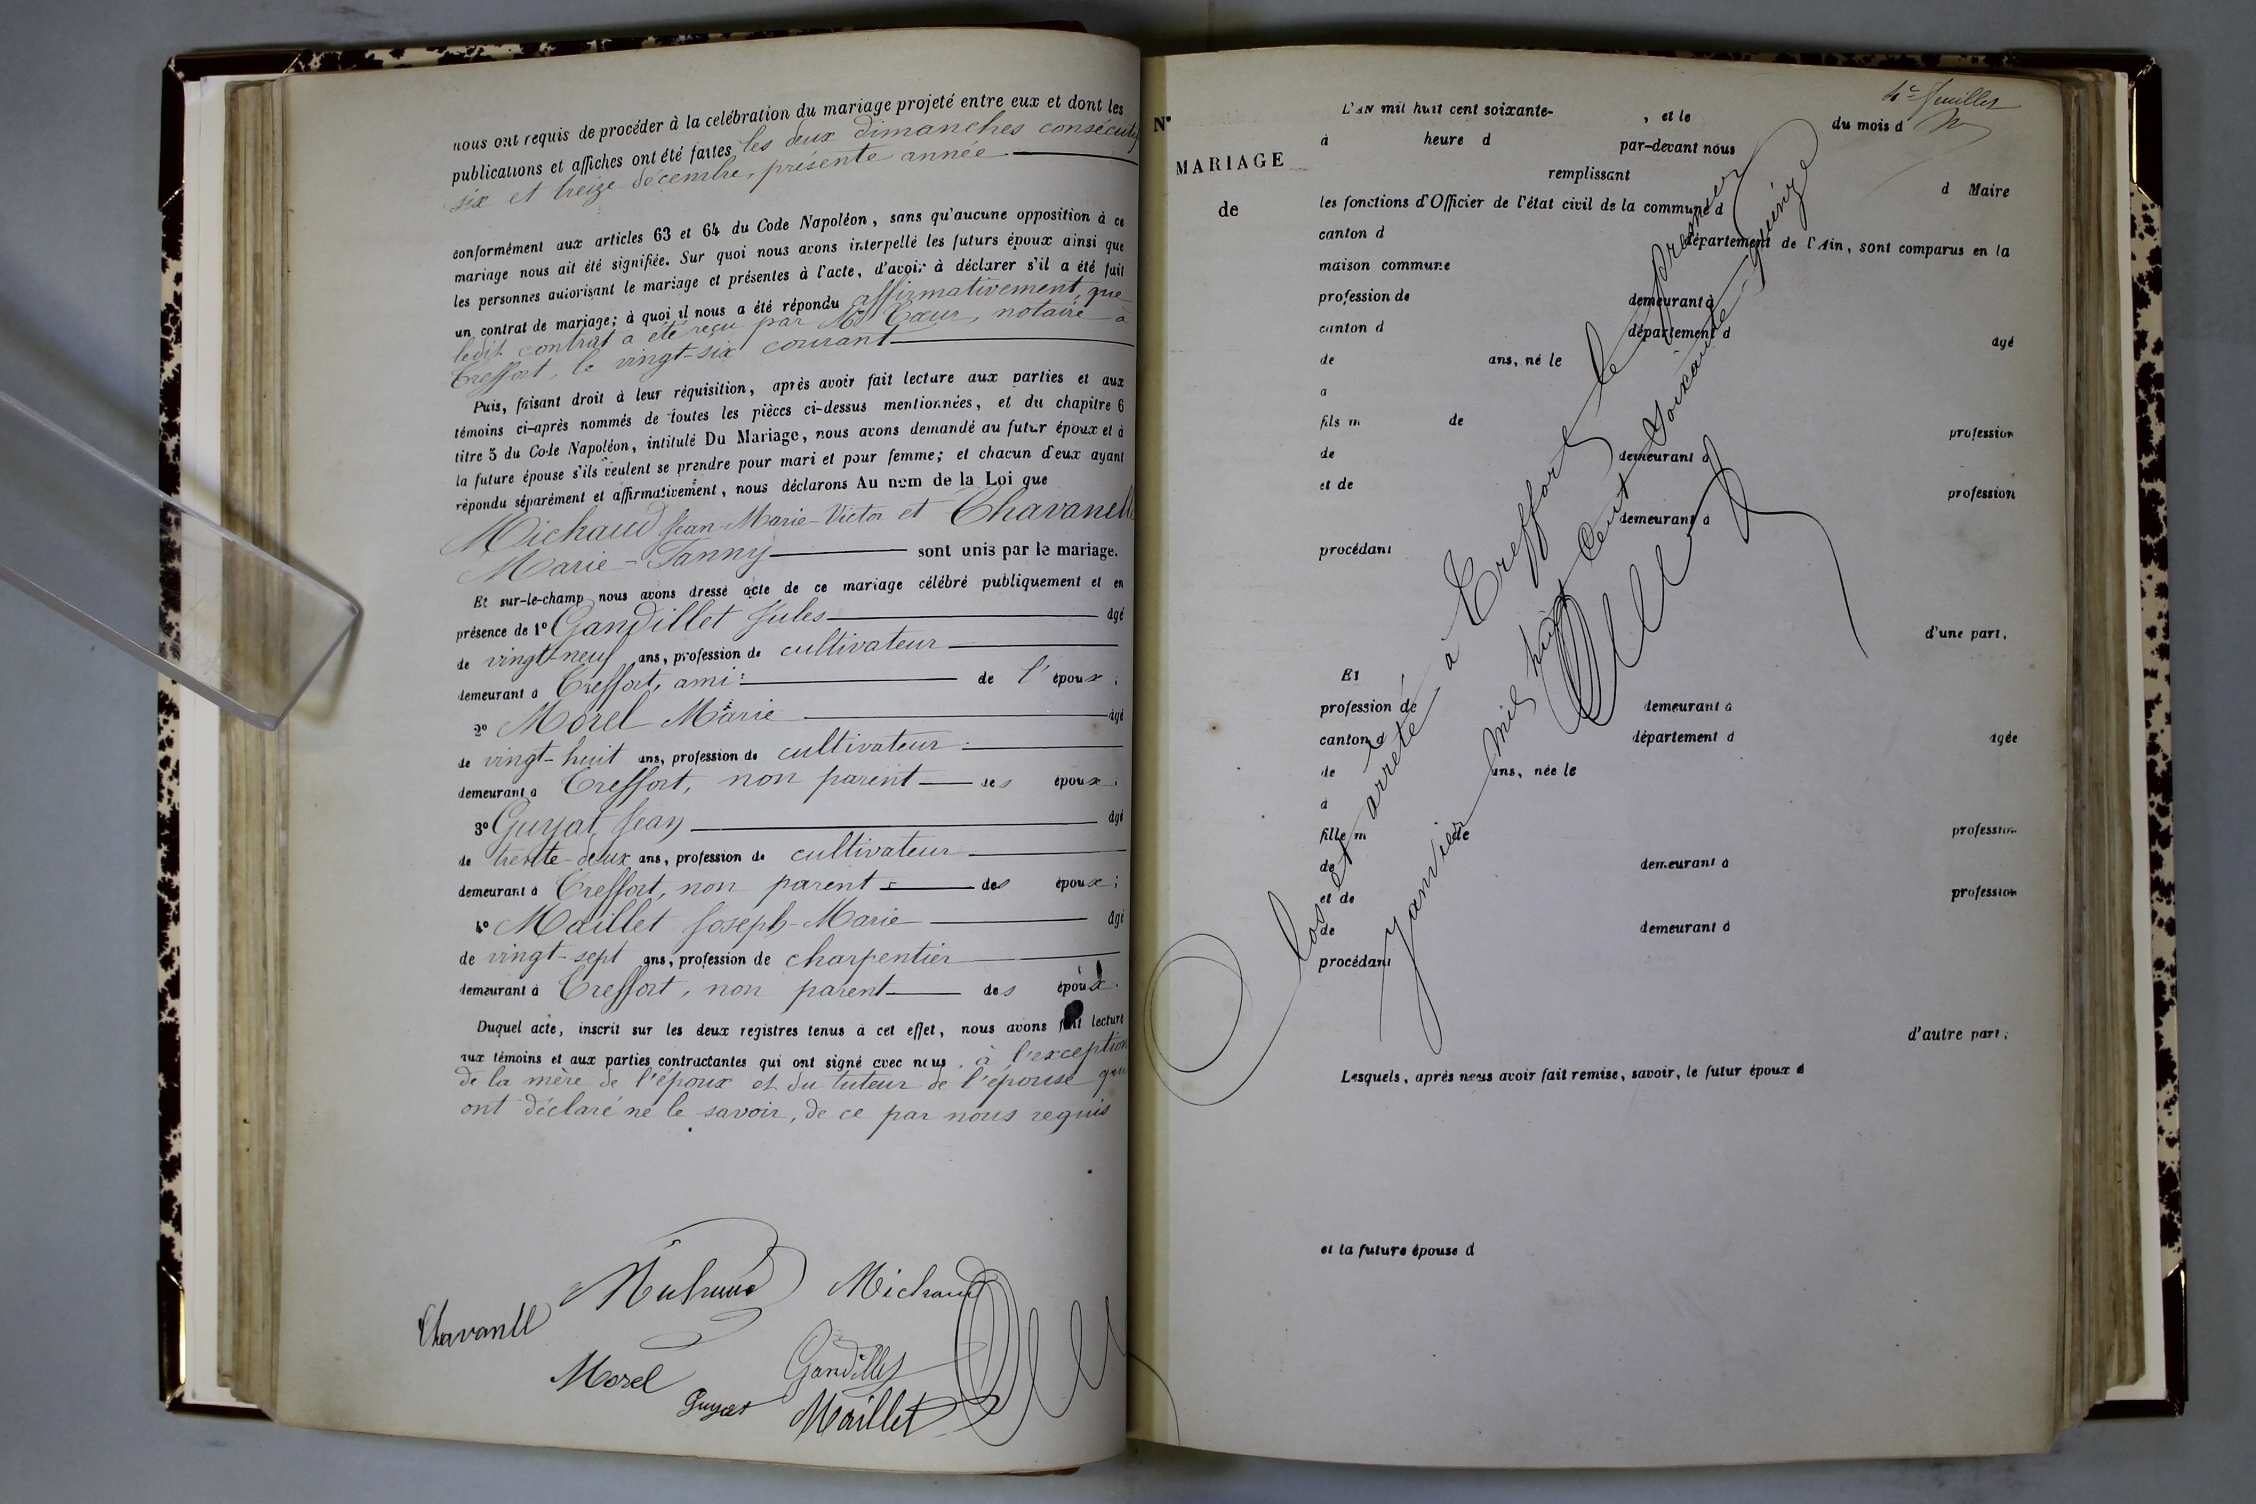 nous ont requis de procéder à la celébration du mariage projeté entre eux et dont les
publications et affiches ont été faites les deux dimanches consécutifs
six et treize décembre, présente année
conformément aux articles 63 et 64 du Code Napoléon, sans qu'aucune opposition à ce
mariage nous ait été signifiée. Sur quoi nous avons interpellé les futurs époux ainsi que
les personnes autorisant le mariage et présentes à l'acte, d'avoir à déclarer s'il a été fait
un contrat de mariage; à quoi il nous a été répondu affirmativement, que
ledit contrat a été reçu par Me Cœur, notaire à
Treffort, le vingt-six courant
Puis, faisant droit à leur réquisition, après avoir fait lecture aux parties et aux
témoins ci-après nommés de toutes les pièces ci-dessus mentionnées, et du chapitre 6
titre 5 du Code Napoléon, intitulé Du Mariage, nous avons demandé au futur époux et à
la future épouse s'ils veulent se prendre pour mari et pour femme; et chacun d'eux ayant
répondu séparément et affirmativement, nous déclarons Au nom de la Loi que
Michaud Jean-Marie-Victor et Chavanelle
Marie-Fanny sont unis par le mariage.
Et sur-le-champ nous avons dressé acte de ce mariage célébré publiquement et en
présence de 1º Gandillet Jules âgé
de vingt-neuf ans, profession de cultivateur
demeurant à Treffort, ami: de l'époux;
2º Morel Marie âgé
de vingt-huit ans, profession de cultivateur
demeurant à Treffort, non parent des époux;
3º Guyat Jean âgé
de trente-deux ans, profession de cultivateur
demeurant à Treffort, non parent des époux;
4º Maillet Joseph-Marie âgé
de vingt-sept ans, profession de charpentier
demeurant à Treffort, non parent des époux.
Duquel acte, inscrit sur les deux registres tenus à cet effet, nous avons fait lecture
aux témoins et aux parties contractantes qui ont signé avec nous, à l'exception
de la mère de l'époux et du tuteur de l'épouse qui
ont déclaré ne le savoir, de ce par nous requis
Michaud Michaud
Chavanell
Morel Gandillet
Guyat Maillet
4e feuillet
Nº
MARIAGE
de
L'AN mil huit cent soixante- , et le du mois d
à heure d par-devant nous
remplissant d Maire
les fonctions d'Officier de l'état civil de la commune d
canton d département de l'Ain, sont comparus en la
maison commune
profession de demeurant à
canton d département d âgé
de ans, né le
à
fils m de profession
de demeurant à
et de profession
demeurant à
procédant
d'une part,
Et
profession de demeurant à
canton d département d âgée
de ans, née le
à
fille m de profession
de demeurant à
et de profession
de demeurant à
procédant
d'autre part;
Lesquels, après nous avoir fait remise, savoir, le futur époux d
et la future épouse d
Clos et arrêté à Treffort le premier
Janvier mil huit cent soixante-quinze